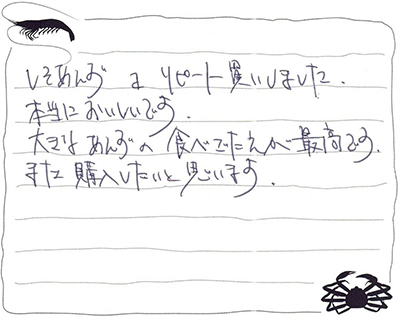 しそあんず を リピート買いしました.
本当においしいです.
大きな あんずの 食べごたえが 最高です.
また 購入したいと思います.